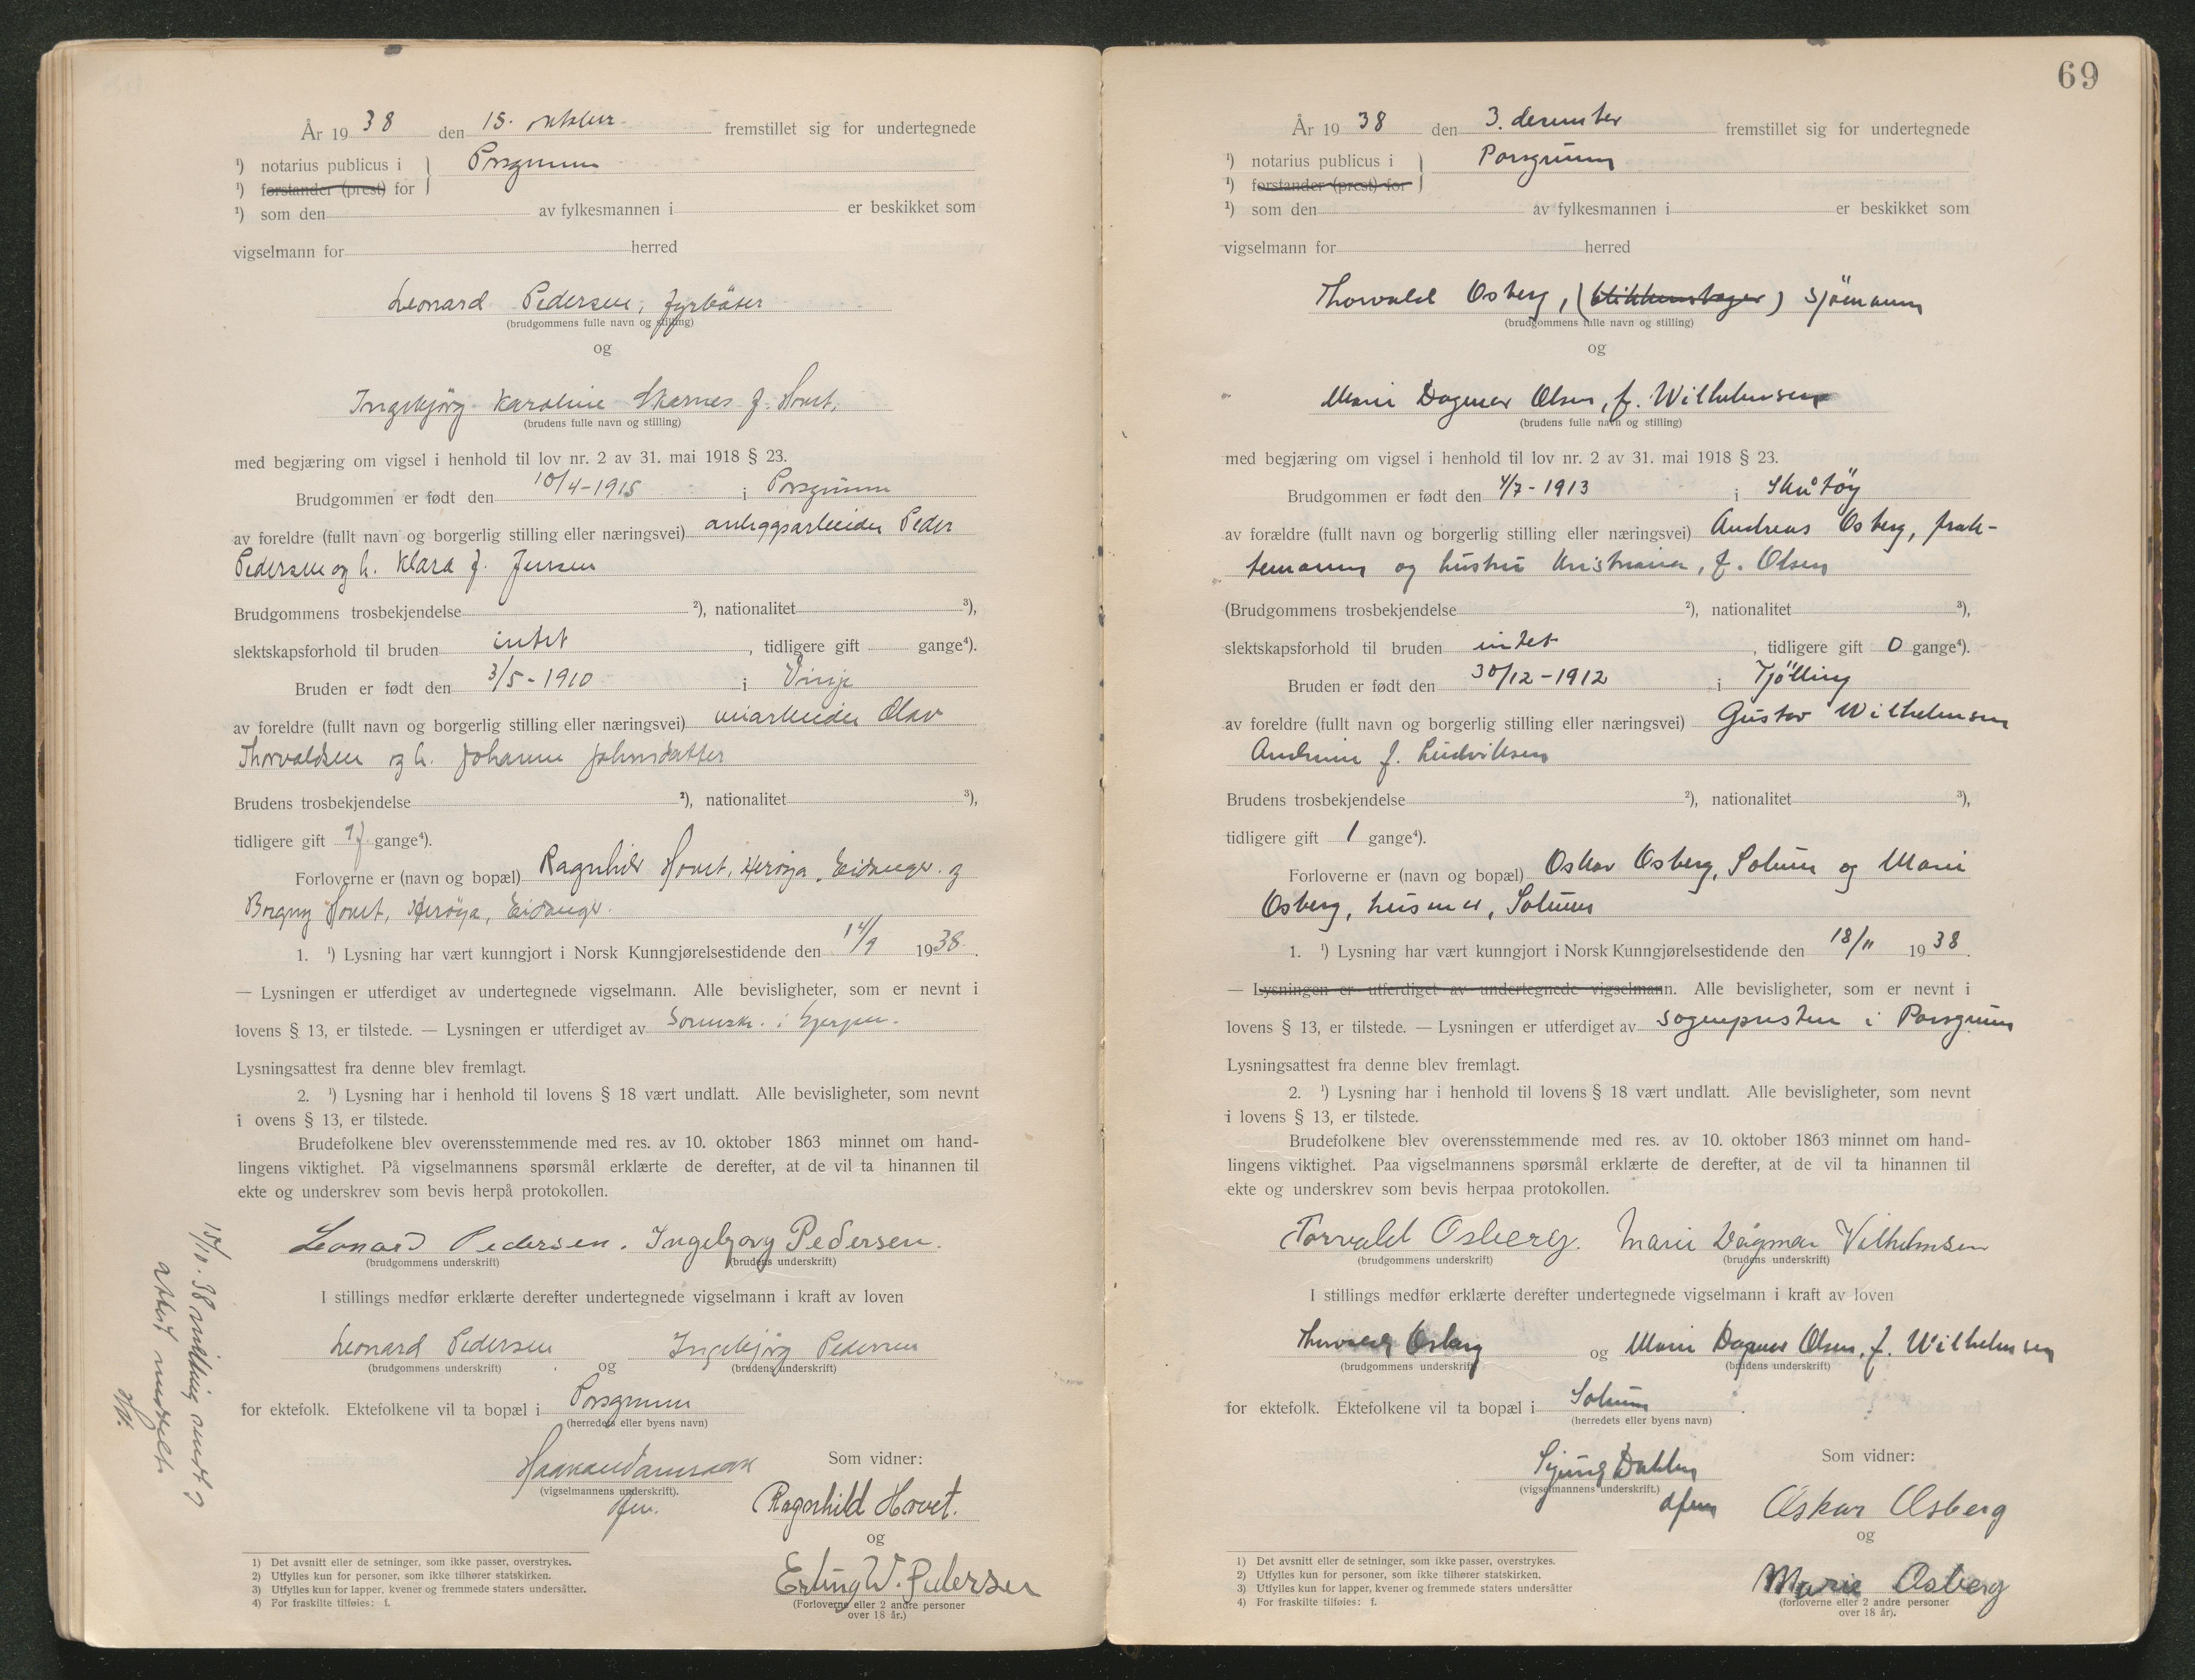 År 19 38 den 15. oktober fremstillet sig for undertegnede
¹) notarius publicus i } Porsgrunn
¹) forstander (prest) for
¹) som den av fylkesmannen i er beskikket som
vigselmann for herred
Leonard Pedersen, fyrbøter
(brudgommens fulle navn og stilling)
og
Ingebjörg Karoline Skarnes f. Hovet,
(brudens fulle navn og stilling)
med begjæring om vigsel i henhold til lov nr. 2 av 31. mai 1918 § 23.
Brudgommen er født den 10/4-1915 i Porsgrunn
av foreldre (fullt navn og borgerlig stilling eller næringsvei) anleggsarbeider Peder
Pedersen og h. Klara f. Jensen
Brudgommens trosbekjendelse ²), nationalitet ³),
slektskapsforhold til bruden intet, tidligere gift gange⁴).
Bruden er født den 3/5-1910 i Vinje
av foreldre (fullt navn og borgerlig stilling eller næringsvei) Olav
Thorvaldsen og h. Johanne Johnsdatter
Brudens trosbekjendelse ²), nationalitet ³),
tidligere gift 1f gange⁴).
Forloverne er (navn og bopæl) Ragnhild Hovet, Herøya, Eidanger og
Borgny Hovet, Herøya, Eidanger.
1. ¹) Lysning har vært kunngjort i Norsk Kunngjørelsestidende den 14/9 1938.
— Lysningen er utferdiget av undertegnede vigselmann. Alle bevisligheter, som er nevnt i
lovens § 13, er tilstede. — Lysningen er utferdiget av Sorenskr. i Gjerpen.
Lysningsattest fra denne blev fremlagt.
2. ¹) Lysning har i henhold til lovens § 18 vært undlatt. Alle bevisligheter, som nevnt
i ovens § 13, er tilstede.
Brudefolkene blev overensstemmende med res. av 10. oktober 1863 minnet om hand-
lingens viktighet. På vigselmannens spørsmål erklærte de derefter, at de vil ta hinannen til
ekte og underskrev som bevis herpå protokollen.
Leonard Pedersen. Ingebjorg Pedersen.
(brudgommens underskrift) (brudens underskrift)
I stillings medfør erklærte derefter undertegnede vigselmann i kraft av loven
Leonard Pedersen og Ingebjörg Pedersen
(brudgommens underskrift) (brudens underskrift)
for ektefolk. Ektefolkene vil ta bopæl i Porsgrunn
(herredets eller byens navn)
15/10-38 melding sendt og
attest utstedt
Som vidner:
(vigselmannens underskrift).
Ragnhild Hovet.
og
Erling W. Pedersen
(Forloverne eller 2 andre personer
over 18 år.)
1) Det avsnitt eller de setninger, som ikke passer, overstrykes.
2) Utfylles kun for personer, som ikke tilhører statskirken.
3) Utfylles kun for lapper, kvener og fremmede staters undersåtter.
4) For fraskilte tilføies: f.
69
År 19 38 den 3. desember fremstillet sig for undertegnede
¹) notarius publicus i } Porsgrunn
¹) forstander (prest) for
¹) som den av fylkesmannen i er beskikket som
vigselmann for herred
Thorvald Osberg, (blikkenslager) sjömann
(brudgommens fulle navn og stilling)
og
Marie Dagmar Olsen, f. Wilhelmsen
(brudens fulle navn og stilling)
med begjæring om vigsel i henhold til lov nr. 2 av 31. mai 1918 § 23.
Brudgommen er født den 4/7-1913 i Skåtöy
av forældre (fullt navn og borgerlig stilling eller næringsvei) Andreas Osberg, frak-
temann og hustru Kristiana, f. Olsen
(Brudgommens trosbekjendelse ²), nationalitet ³),
slektskapsforhold til bruden intet, tidligere gift 0 gange⁴).
Bruden er født den 30/12-1912 i Tjölling
av foreldre (fullt navn og borgerlig stilling eller næringsvei) Gustav Wilhelmsen
Andrine f. Ludviksen
Brudens trosbekjendelse ²), nationalitet ³),
tidligere gift 1 gange⁴).
Forloverne er (navn og bopæl) Oskar Osberg, Solum og Marie
Osberg, husmor, Solum
1. ¹) Lysning har vært kunngjort i Norsk Kunngjørelsestidende den 18/11 1938.
— Lysningen er utferdiget av undertegnede vigselmann. Alle bevisligheter, som er nevnt i
lovens § 13, er tilstede. — Lysningen er utferdiget av sognepresten i Porsgrunn
Lysningsattest fra denne blev fremlagt.
2. ¹) Lysning har i henhold til lovens § 18 vært undlatt. Alle bevisligheter, som nevnt
i lovens § 13, er tilstede.
Brudefolkene blev overensstemmende med res. av 10. oktober 1863 minnet om hand-
lingens viktighet. Paa vigselmannens spørsmål erklærte de derefter, at de vil ta hinannen til
ekte og underskrev som bevis herpaa protokollen.
Torvald Osberg. Marie Dagmar Vilhelmsen
(brudgommens underskrift) (brudens underskrift)
I stillings medfør erklærte derefter undertegnede vigselmann i kraft av loven
Thorvald Osberg og Marie Dagmar Olsen, f. Wilhelmsen
(brudgommens underskrift) (brudens underskrift)
for ektefolk. Ektefolkene vil ta bopæl i Solum.
(herredets eller byens navn)
Som vidner:
Dahlen
(vigselmannens underskrift.)
Oskar Osberg
og
Marie Osberg
(forloverne eller 2 andre personer
over 18 år).
1) Det avsnitt eller de setninger, som ikke passer, overstrykes.
2) Utfylles kun for personer, som ikke tilhører statskirken.
3) Utfylles kun for lapper, kvener og fremmede staters undersåtter
4) For fraskilte tilføies: f.